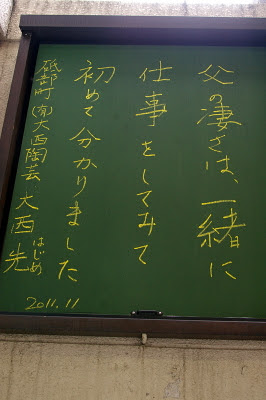 父の凄さは、一緒に
仕事をしてみて
初めて分かりました
砥部町(有)大西陶芸 大西 先
はじめ
2011.11